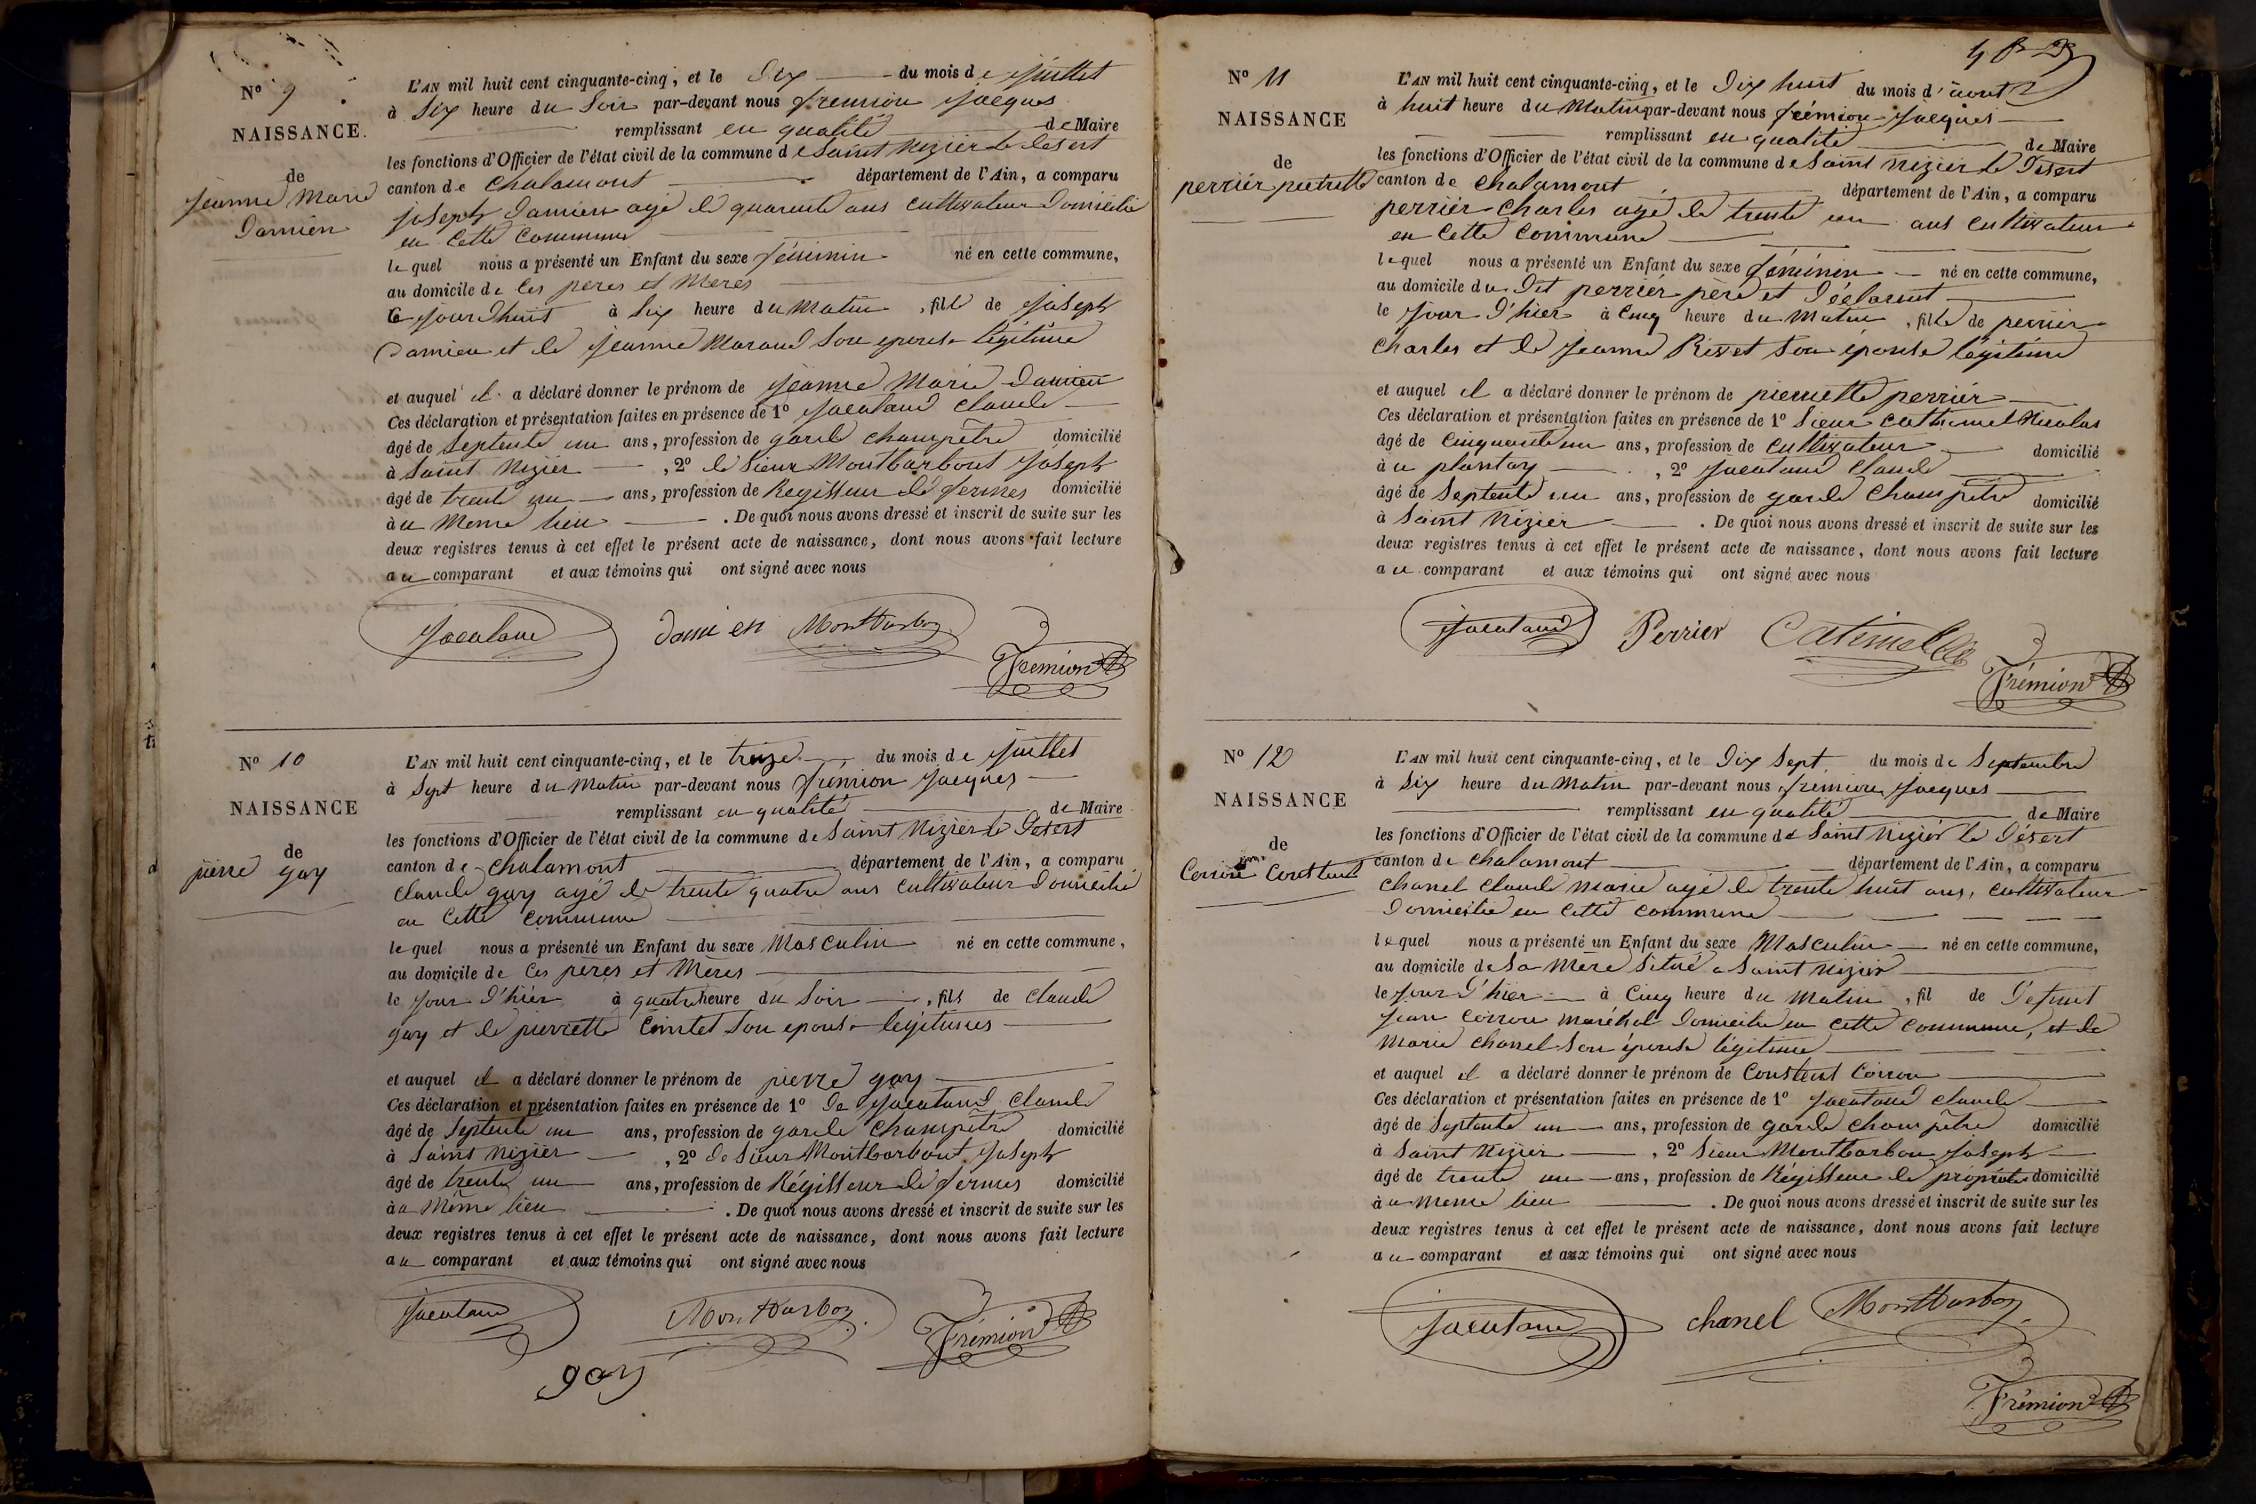 N° 9
NAISSANCE.
de
Jeanne Marie
Damien
L'AN mil huit cent cinquante-cinq, et le Dix du mois de Juillet
à Six heure du Soir par-devant nous fremion Jacques
remplissant en qualité de Maire
les fonctions d'Officier de l'état civil de la commune de Saint Nizier le Desert
canton de Chalamont département de l'Ain, a comparu
Joseph Damien agé de quarente ans cultivateur Domicilié
en Cette Commune
lequel nous a présenté un Enfant du sexe féminin né en cette commune,
au domicile de Ces peres et Meres
Ce Jourdhuit à Six heure du Matin, fille de Joseph
Damien et de Jeanne Maraud Son epouse légitime
et auquel il a déclaré donner le prénom de Jeanne Marie Damien
Ces déclaration et présentation faites en présence de 1° Jacutaud Claude
âgé de Septente un ans, profession de garde Champêtre domicilié
à Saint Nizier, 2° de Sieur Montbarbout Joseph
âgé de trente un ans, profession de Regisseur de fermes domicilié
au Meme lieu. De quoi nous avons dressé et inscrit de suite sur les
deux registres tenus à cet effet le présent acte de naissance, dont nous avons fait lecture
au comparant et aux témoins qui ont signé avec nous
Jacutaud Damien MontBarbon
Fremion
N° 10
NAISSANCE
de
pierre gay
L'AN mil huit cent cinquante-cinq, et le treize du mois de Juillet
à Sept heure du Matin par-devant nous fremion Jacques
remplissant en qualité de Maire
les fonctions d'Officier de l'état civil de la commune de Saint Nizier le Desert
canton de Chalamont département de l'Ain, a comparu
Claude gay agé de trente quatre ans cultivateur Domicilié
en Cette Commune
lequel nous a présenté un Enfant du sexe Masculin né en cette commune,
au domicile de Ces peres et Mères
le Jour D'hier à quatre heure du Soir, fils de Claude
gay et de pierrette Comtet Son epouse légitimes
et auquel il a déclaré donner le prénom de pierre gay
Ces déclaration et présentation faites en présence de 1° De Jacutaud Claude
âgé de Septente un ans, profession de garde Champêtre domicilié
à Saint Nizier, 2° de Sieur Montbarbout Joseph
âgé de trente un ans, profession de Régisseur de fermes domicilié
au Même lieu. De quoi nous avons dressé et inscrit de suite sur les
deux registres tenus à cet effet le présent acte de naissance, dont nous avons fait lecture
au comparant et aux témoins qui ont signé avec nous
Jacutaud MontBarbon Frémion
gay
N° 11
NAISSANCE
de
perriér
L'AN mil huit cent cinquante-cinq, et le Dix huit du mois d'aout
à huit heure du Matin par-devant nous frémion Jacques
remplissant en qualité de Maire
les fonctions d'Officier de l'état civil de la commune de Saint Nizier le Désert
canton de Chalamont département de l'Ain, a comparu
perriér Charles agé de trente un ans cultivateur
en Cette Commune
lequel nous a présenté un Enfant du sexe féminin né en cette commune,
au domicile du Dit perriér père et Déclarent
le Jour D'hier à Cinq heure du Matin, fille de perriér
Charles et de Jeanne Rivet Son épouse légitime
et auquel il a déclaré donner le prénom de pierrette perriér
Ces déclaration et présentation faites en présence de 1° Sieur Cathimel Nicolas
âgé de Cinquante un ans, profession de Cultivateur domicilié
au plantay, 2° Jacutaud Claude
âgé de Septente un ans, profession de garde Champêtre domicilié
à Saint Nizier. De quoi nous avons dressé et inscrit de suite sur les
deux registres tenus à cet effet le présent acte de naissance, dont nous avons fait lecture
au comparant et aux témoins qui ont signé avec nous
Jacutaud Perrier Catimel
Frémion
N° 12
NAISSANCE
de
Corron Constent
L'AN mil huit cent cinquante-cinq, et le Dix Sept du mois de Septembre
à Six heure du Matin par-devant nous fremion Jacques
remplissant en qualité de Maire
les fonctions d'Officier de l'état civil de la commune de Saint Nizier le Désert
canton de Chalamont département de l'Ain, a comparu
Chanel Claude Marie agé de trente huit ans, cultivateur
Domicilié en Cette Commune
lequel nous a présenté un Enfant du sexe Masculin né en cette commune,
au domicile de Sa Mère Situé a Saint Nizier
le Jour D'hier à Cinq heure du Matin, fil de Defunt
Jean Corron maréchal Domicilié en Cette Commune, et de
Marie Chanel Son épouse légitime
et auquel il a déclaré donner le prénom de Constent Corron
Ces déclaration et présentation faites en présence de 1° Jacutaud Claude
âgé de Septente un ans, profession de garde Champêtre domicilié
à Saint Nizier, 2° Sieur Montbarbon Joseph
âgé de trente un ans, profession de Régisseur de propriété domicilié
au Meme lieu. De quoi nous avons dressé et inscrit de suite sur les
deux registres tenus à cet effet le présent acte de naissance, dont nous avons fait lecture
au comparant et aux témoins qui ont signé avec nous
Jacutaud chanel MontBarbon
Frémion